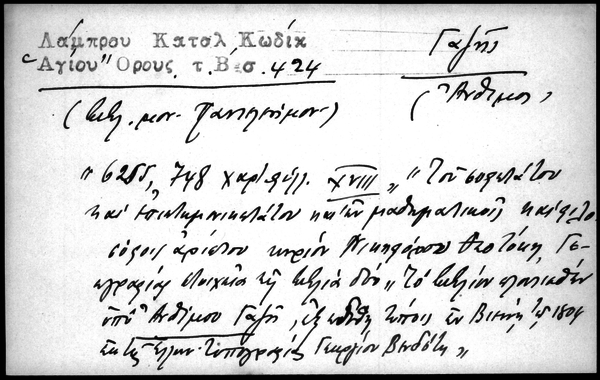 Λάμπρου Κατσλ Κωδίκ
Ἁγίου" Ορους τ.Β΄ σ. 424
Γαζῆς
(Ἄνθιμος)
(Βιβλ. μον. Παντελεήμον.)
"6255, 748 χαρτ. XVIII " "Τοῦ σοφωτάτου
καὶ ἐπιστημονικωτάτου κἀν μαθηματικοῖς καὶ φιλο
σόφοις ἀρίστου κυρίου Νικηφόρου Θεοτόκη, Γε-
ωγραφίας στοιχεῖα ἐν βιβλίοις δύο" Τὸ βιβλίον
ὑπὸ Ἀνθίμου Γαζῆ, ἐξεδόθη τύποις ἐν Βιέννῃ τῷ 1804
ἐκ τῆς ἑλλην. τυπογραφίας Γεωργίου Βενδότη"